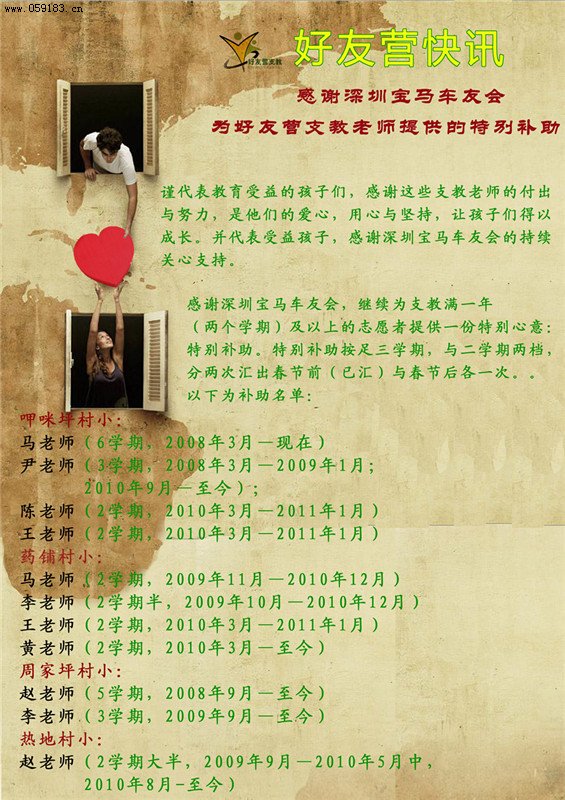 www.059183.cn
好友营支教
好友营快讯
感谢深圳宝马车友会
为好友营支教老师提供的特别补助
谨代表教育受益的孩子们，感谢这些支教老师的付出
与努力，是他们的爱心，用心与坚持，让孩子们得以
成长。并代表受益孩子，感谢深圳宝马车友会的持续
关心支持。
感谢深圳宝马车友会，继续为支教满一年
（两个学期）及以上的志愿者提供一份特别心意：
特别补助。特别补助按足三学期，与二学期两档，
分两次汇出春节前（已汇）与春节后各一次。。
以下为补助名单：
呷咪坪村小：
马老师（6学期，2008年3月—现在）
尹老师（3学期，2008年3月—2009年1月；
2010年9月—至今）；
陈老师（2学期，2010年3月—2011年1月）
王老师（2学期，2010年3月—2011年1月）
药铺村小：
马老师（2学期，2009年11月—2010年12月）
李老师（2学期半，2009年10月—2010年12月）
王老师（2学期，2010年3月—2011年1月）
黄老师（2学期，2010年3月—至今）
周家坪村小：
赵老师（5学期，2008年9月—至今）
李老师（3学期，2009年9月—至今）
热地村小：
赵老师（2学期大半，2009年9月—2010年5月中，
2010年8月-至今）